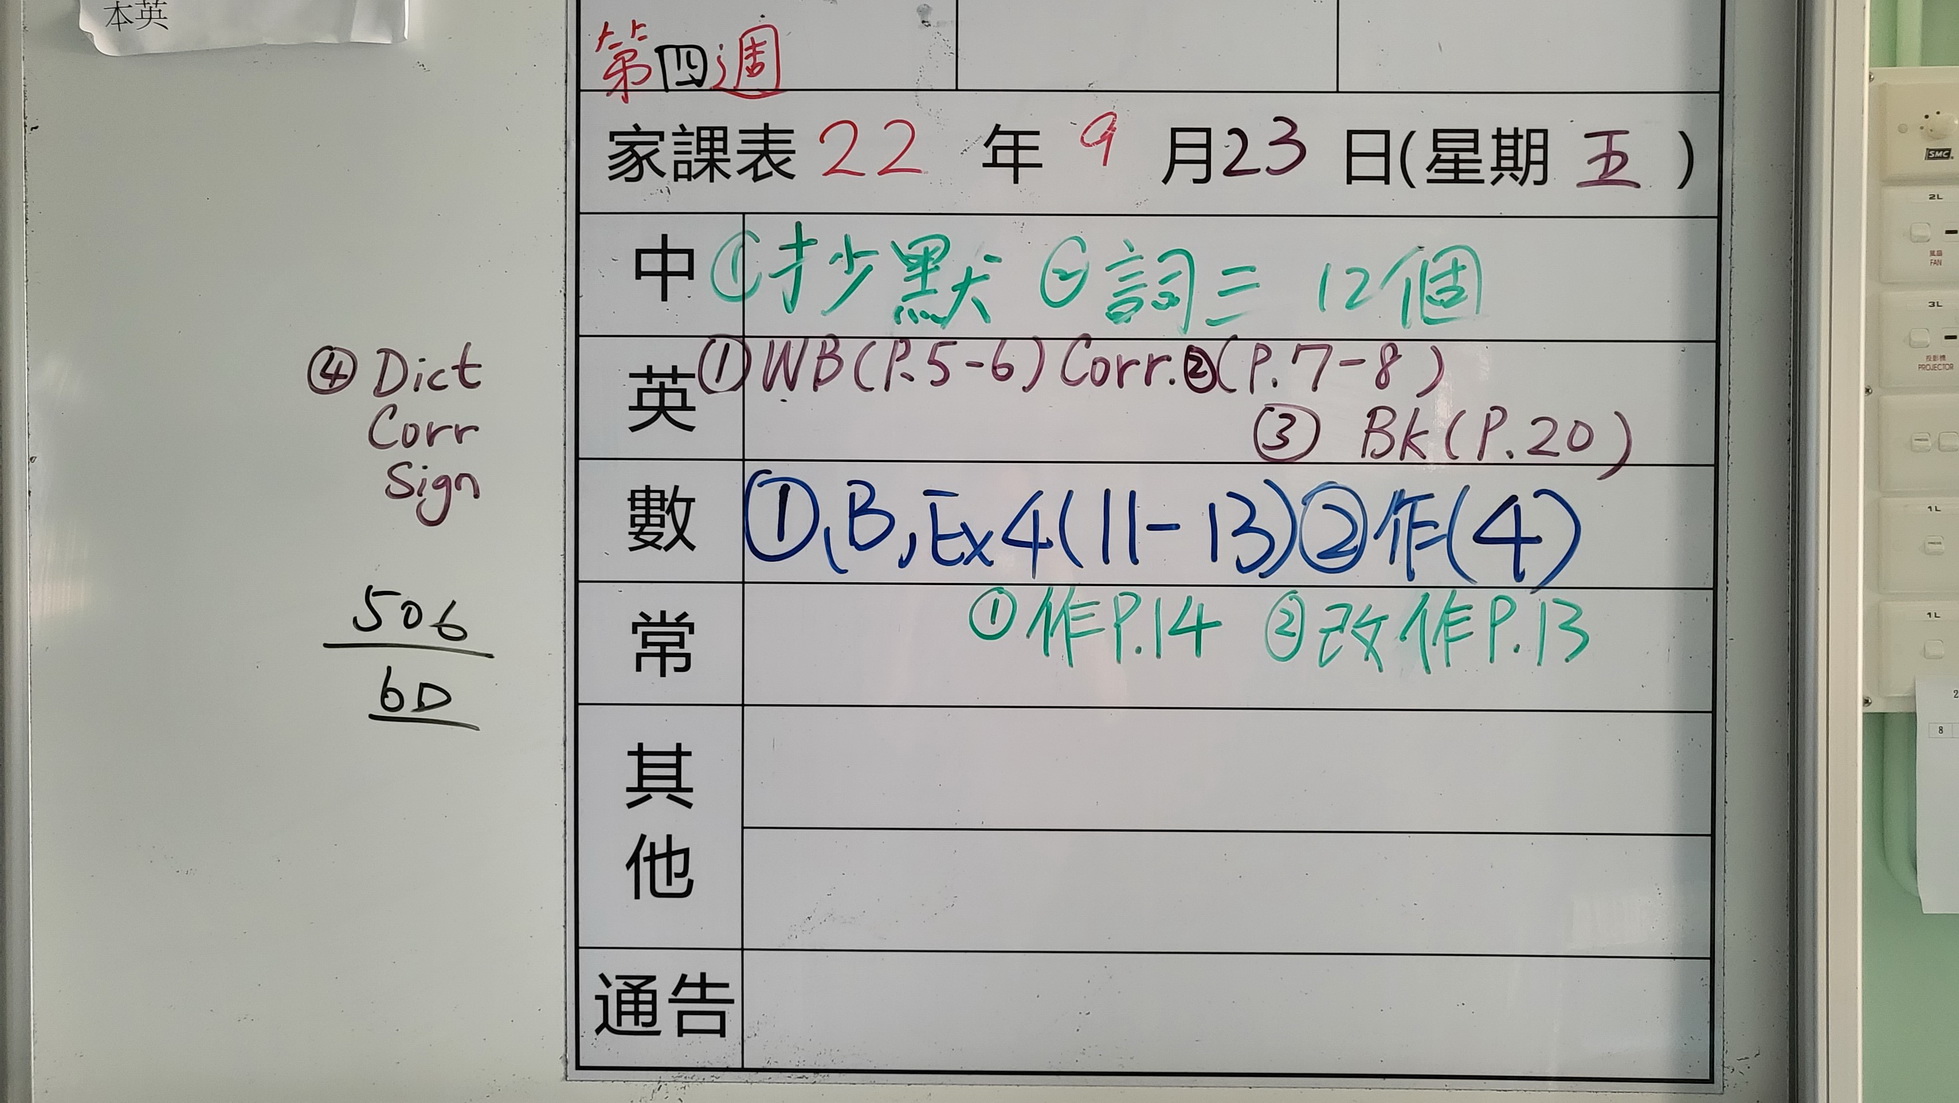 本英
第四週
家課表 22 年 9 月 23 日(星期 五 )
中 ①抄默 ②詞三 12個
英 ①WB(P.5-6) Corr. ②(P.7-8)
③ Bk(P.20)
④ Dict
Corr
Sign
數 ①、B,Ex4(11-13)②作(4)
常 ①作P.14 ②改作P.13
506
6D
其他
通告
SMC
2L
風扇
FAN
3L
投影機
PROJECTOR
1L
1L
2
8